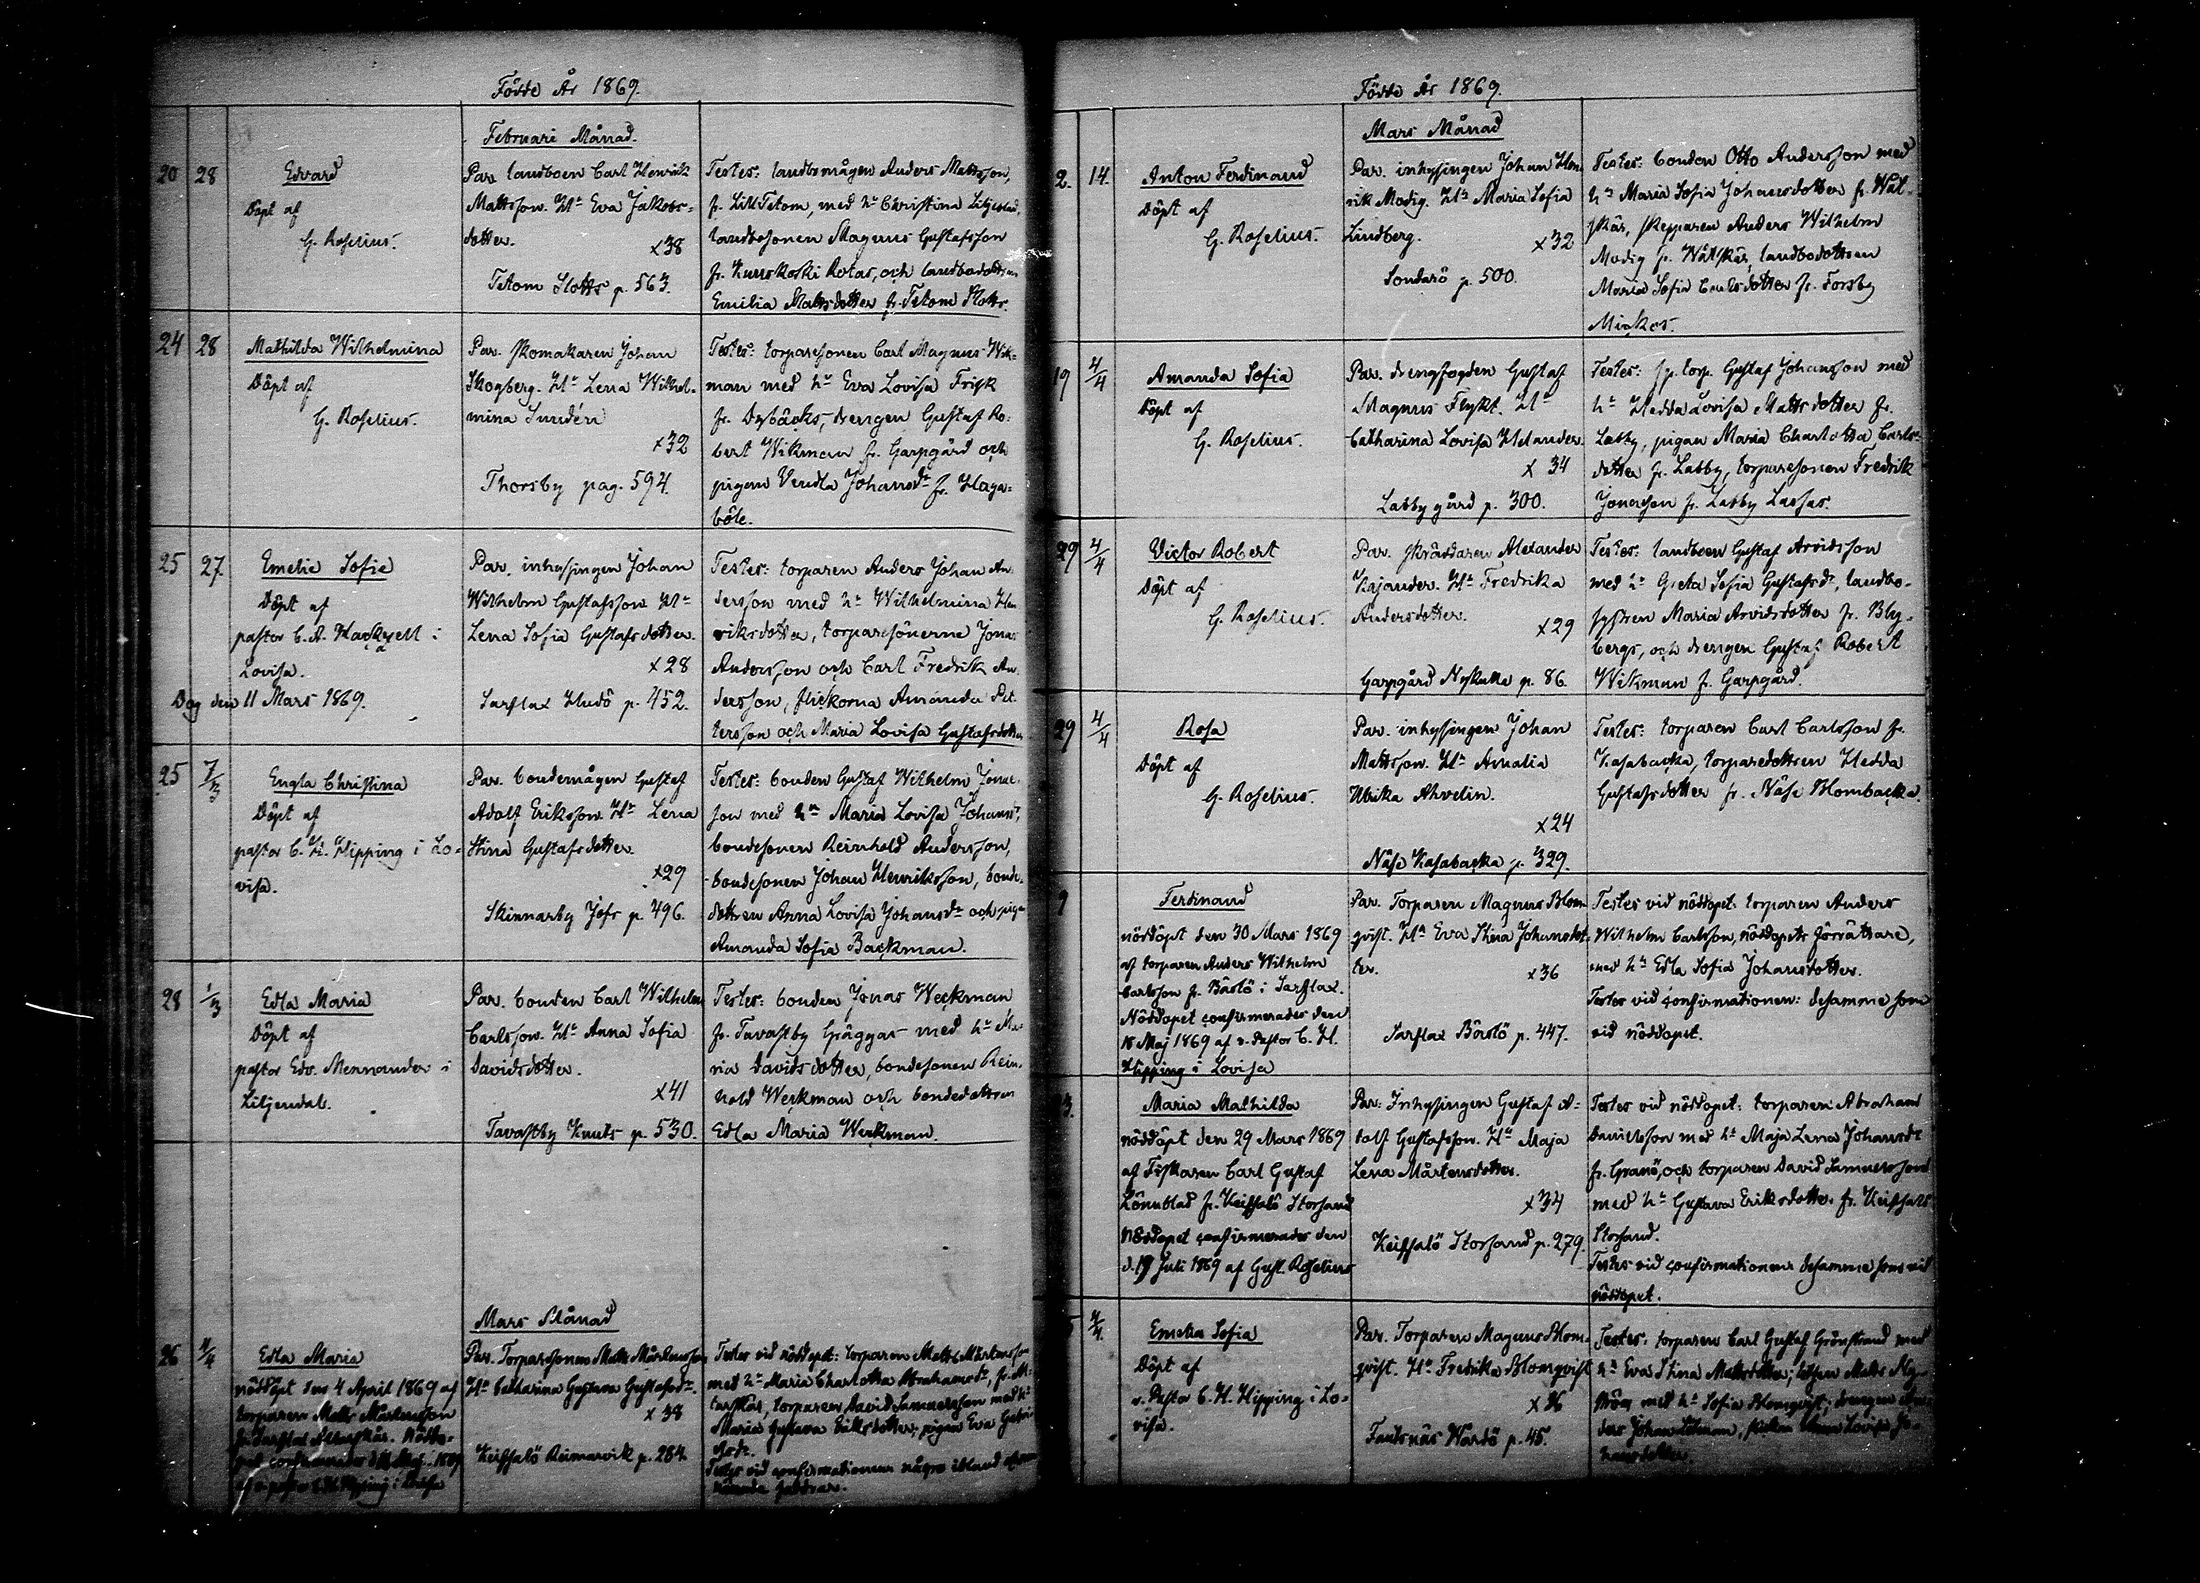 Födde År 1869.
Februari Månad.
20 28 Edvard
Döpt af
G. Roselius.
Par. landboen Carl Henrik
Mattsson. H:u Eva Jakobs-
dotter.
x38
Tetom Slotts p. 563.
Testes: landbomågen Anders Mattsson,
fr. Lill Tetom, med h:u Christina Liljeblad,
landbosonen Magnus Gustafsson
fr. Kuuskoski Rotas, och landbodottren
Emilia Mattsdotter fr. Tetom Slotts.
24 28 Mathilda Wilhelmina
Döpt af
G. Roselius.
Par. skomakaren Johan
Skogberg. H:u Lena Wilhel-
mina Sundén
x32
Thorsby pag. 594.
Testes: torparesonen Carl Magnus Wik-
man med h:u Eva Lovisa Frisk
fr. Dybäcks, drengen Gustaf Ro-
bert Wikman fr. Garpgård och
pigan Vendla Johansd:r fr. Haga-
böle.
25 27. Emelie Sofie
Döpt af
pastor C. A. Hackzell i
Lovisa.
Dog den 11 Mars 1869.
Par. inhysingen Johan
Wilhelm Gustafsson H:u
Lena Sofia Gustafsdotter.
x28
Sarflax Hudö p. 452.
Testes: torparen Anders Johan An-
dersson med h:u Wilhelmina Hen
riksdotter, torparesönerne Jonas
Andersson och Carl Fredrik An-
dersson, flickorna Amanda Pet-
tersson och Maria Lovisa Gustafsdotter
25 7/3 Engla Christina
Döpt af
pastor C. H. Hipping i Lo-
visa.
Par. bondemågen Gustaf
Adolf Eriksson. H:u Lena
Stina Gustafsdotter.
x29
Skinnarby Jofs p. 496.
Testes: bonden Gustaf Wilhelm Jonas-
son med h:u Maria Lovisa Johansd:r,
bondesonen Reinhold Andersson,
bondesonen Johan Henriksson, bonde-
dottren Anna Lovisa Johansd:r och pigan
Amanda Sofia Backman.
28 1/3 Edla Maria
Döpt af
pastor Edv. Mennander i
Liljendal.
Par. bonden Carl Wilhelm
Carlsson. H:u Anna Sofia
Davidsdotter.
x41
Tavastby Knuts p. 530.
Testes: bonden Jonas Weckman
fr. Tavastby Gräggas med h:u Ma-
ria Davidsdotter, bondesonen Rein-
hold Weckman och bondedottren
Edla Maria Weckman.
Mars Månad
26 4/4 Edla Maria
nöddöpt den 4 April 1869 af
torparen Matts Mårtensson
Par. Torparesonen Matts Mårtensson
H:u Catharina Gustava Gustafsd:r.
x 38
Keipsalö Reimarsvik p. 284.
Testes vid nöddopet: torparen Matts Mårtensson
med h:u Maria Charlotta Abrahamsd:r,
torparen David Samuelsson med h:u
Maria Gustava Eriksdotter, pigan Eva
Testes vid confirmationen några
Födde År 1869.
Mars Månad
2. 14. Anton Ferdinand
Döpt af
G. Roselius.
Par. inhysingen Johan Hen
rik Modig. H:u Maria Sofia
Lindberg.
x32
Sondarö p. 500.
Testes: bonden Otto Andersson med
h:u Maria Sofia Johansdotter fr. Wåt-
skär, skepparen Anders Wilhelm
Modig fr. Wåtskär, landbodottren
Maria Sofia Carlsdotter fr. Forsby
Mickos.
19 4/4 Amanda Sofia
Döpt af
G. Roselius.
Par. drengfogden Gustaf
Magnus Flykt. H:u
Catharina Lovisa Helander.
x 34
Labby gård p. 300.
Testes: sp. torp. Gustaf Johansson med
h:u Hedda Lovisa Mattsdotter fr.
Labby, pigan Maria Charlotta Carls-
dotter fr. Labby, torparesonen Fredrik
Jonasson fr. Labby Lassas.
29 4/4 Victor Robert
Döpt af
G. Roselius.
Par. skräddaren Alexander
Kajander. H:u Fredrika
Andersdotter.
x29
Garpgård Nykulla p. 86.
Testes: landboen Gustaf Arvidsson
med h:u Greta Sofia Gustafsd:r, landbo-
systren Maria Arvidsdotter fr. Bly-
bergs, och drengen Gustaf Robert
Wikman fr. Garpgård.
29 4/4 Rosa
Döpt af
G. Roselius.
Par. inhysingen Johan
Mattsson. H:u Amalia
Ulrika Ahvelin.
x24
Näse Kasabacka p. 329.
Testes: torparen Carl Carlsson fr.
Kasabacka, torparedottren Hedda
Gustafsdotter fr. Näse Blombacka.
9 Ferdinand
nöddöpt den 30 Mars 1869
af torparen Anders Wilhelm
Carlsson fr. Båslö i Sarflax.
Nöddopet confirmerades den
18 Maj 1869 af v. Pastor C. H.
Hipping i Lovisa
Par. Torparen Magnus Blom-
qvist. H:u Eva Stina Johansdot-
ter.
x36
Sarflax Båslö p. 447.
Testes vid nöddopet: torparen Anders
Wilhelm Carlsson, nöddopets förrättare,
med h:u Edla Sofia Johansdotter.
Testes vid confirmationen: desamma som
vid nöddopet.
3. Maria Mathilda
nöddöpt den 29 Mars 1869
af Fiskaren Carl Gustaf
Lönnblad fr. Keipsalö Storsand
Nöddopet confirmerades den
d. 19 Juli 1869 af Gust. Roselius
Par: Inhysingen Gustaf A-
dolf Gustafsson. H:u Maja
Lena Mårtensdotter.
x34
Keipsalö Storsand p. 279.
Testes vid nöddopet: torparen Abraham
Danielsson med h:u Maja Lena Johansd:r
fr. Granö, och torparen David Samuelsson
med h:u Gustava Eriksdotter fr. Keipsalö
Storsand.
Testes vid confirmationen desamma som vid
nöddopet.
4/4 Emelia Sofia
Döpt af
v. Pastor C. H. Hipping i Lo-
visa.
Par. Torparen Magnus Blom-
qvist. H:u Fredrika Blomqvist
x 36
Fantsnäs Wårdö p. 45.
Testes: torparen Carl Gustaf Grönstrand med
h:u Eva Stina Mattsdotter, Matts Ny-
ström med h:u Sofia Blomqvist, drengen An-
ders Johan